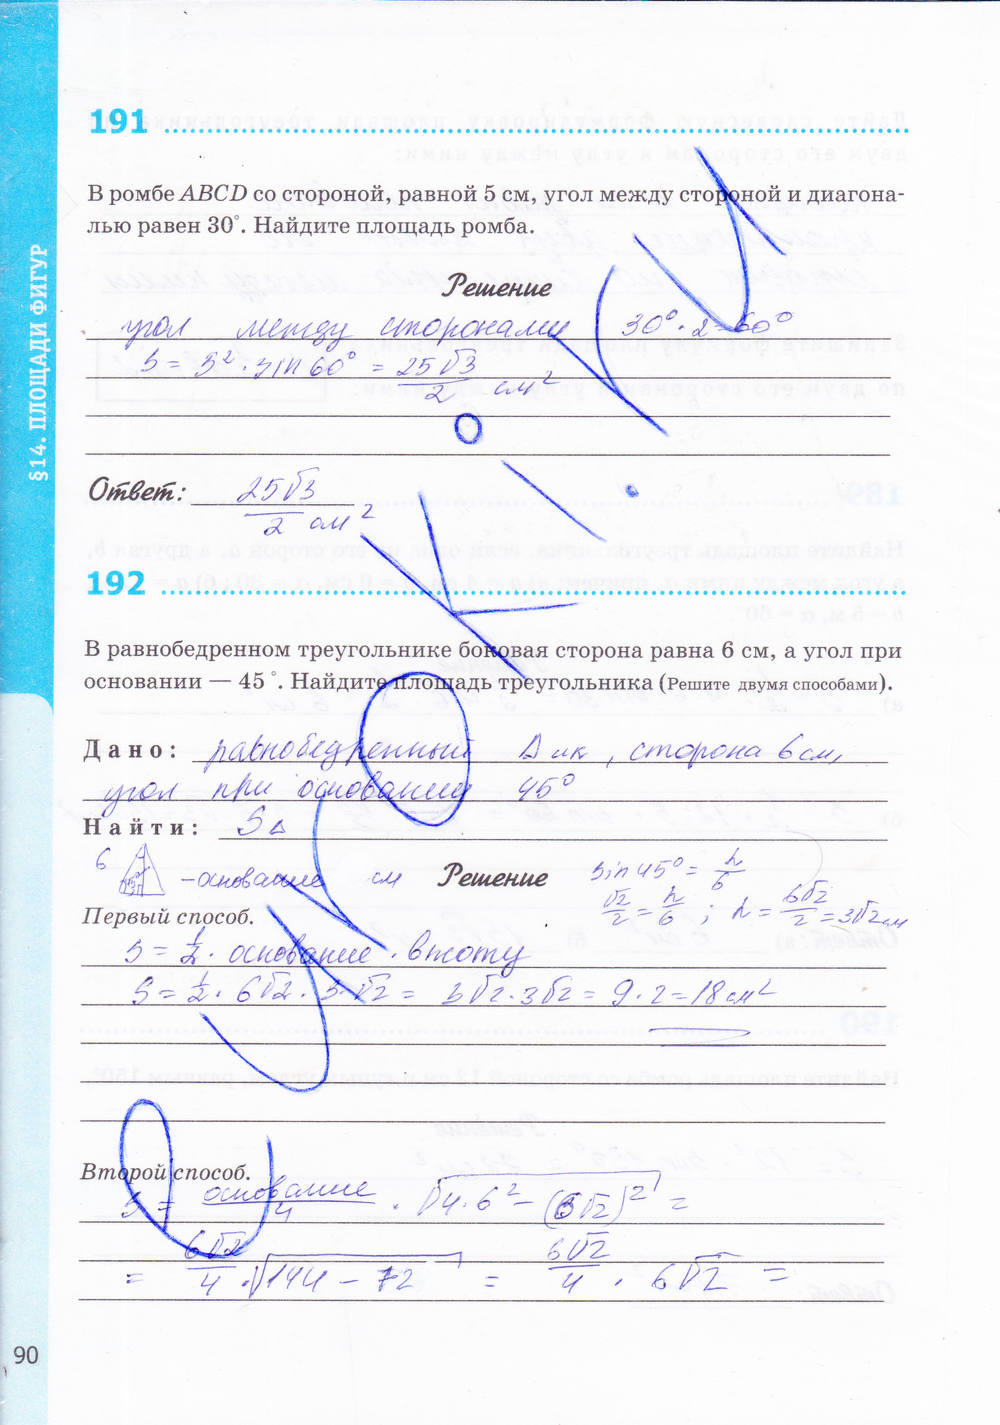 191
В ромбе ABCD со стороной, равной 5 см, угол между стороной и диагона-
лью равен 30°. Найдите площадь ромба.
Решение
угол между сторонами 30°·2=60°
S = 5²·sin 60° = 25√3/2 см²
Ответ: 25√3/2 см²
192
В равнобедренном треугольнике боковая сторона равна 6 см, а угол при
основании — 45°. Найдите площадь треугольника (Решите двумя способами).
Дано: равнобедренный Δик, сторона 6 см,
угол при основании 45°
Найти: SΔ
6 45° -основание см Решение sin 45° = h/6
√2/2 = h/6 ; h = 6√2/2 = 3√2 см
Первый способ.
S = 1/2 · основание · высоту
S = 1/2 · 6√2 · 3·√2 = 3√2·3√2 = 9·2 = 18 см²
Второй способ.
S = основание/4 · √4·6² – (6√2)² =
= 6√2/4 · √144 – 72 = 6√2/4 · 6√2 =
§14. ПЛОЩАДИ ФИГУР
90